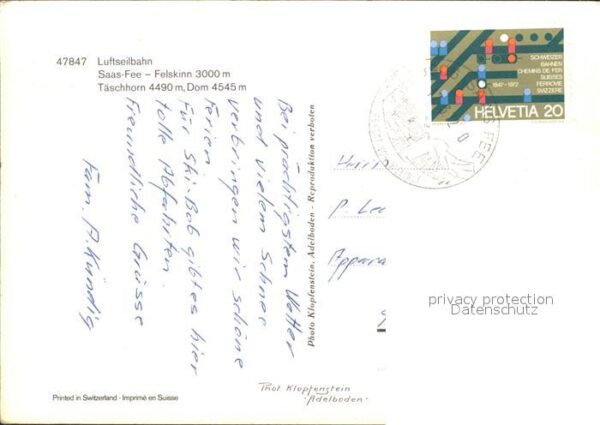 47847 Luftseilbahn
Saas-Fee – Felskinn 3000 m
Täschhorn 4490 m, Dom 4545 m
Bei prächtigstem Wetter
und vielem Schnee
verbringen wir schöne
Ferien.
Für Ski-Bob gibt es hier
tolle Abfahrten.
Freundliche Grüsse
Fam. A. Kündig
Photo Klopfenstein, Adelboden - Reproduktion verboten
SCHWEIZER
BAHNEN
CHEMINS DE FER
SUISSES
FERROVIE
SVIZZERE
1847-1972
HELVETIA 20
Herrn
P. Leu
Appara
privacy protection
Datenschutz
Phot. Klopfenstein
Adelboden
Printed in Switzerland · Imprimé en Suisse